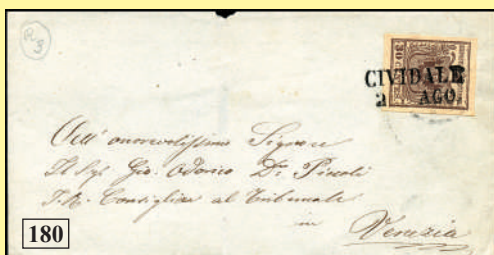 R3
CIVIDALE
2 AGO
30 CENTES
All' onorevolissimo Signore
Il Sigr Gio. Odorico Dr. Piccoli
I. R. Consigliere al Tribunale
in
Venezia
180